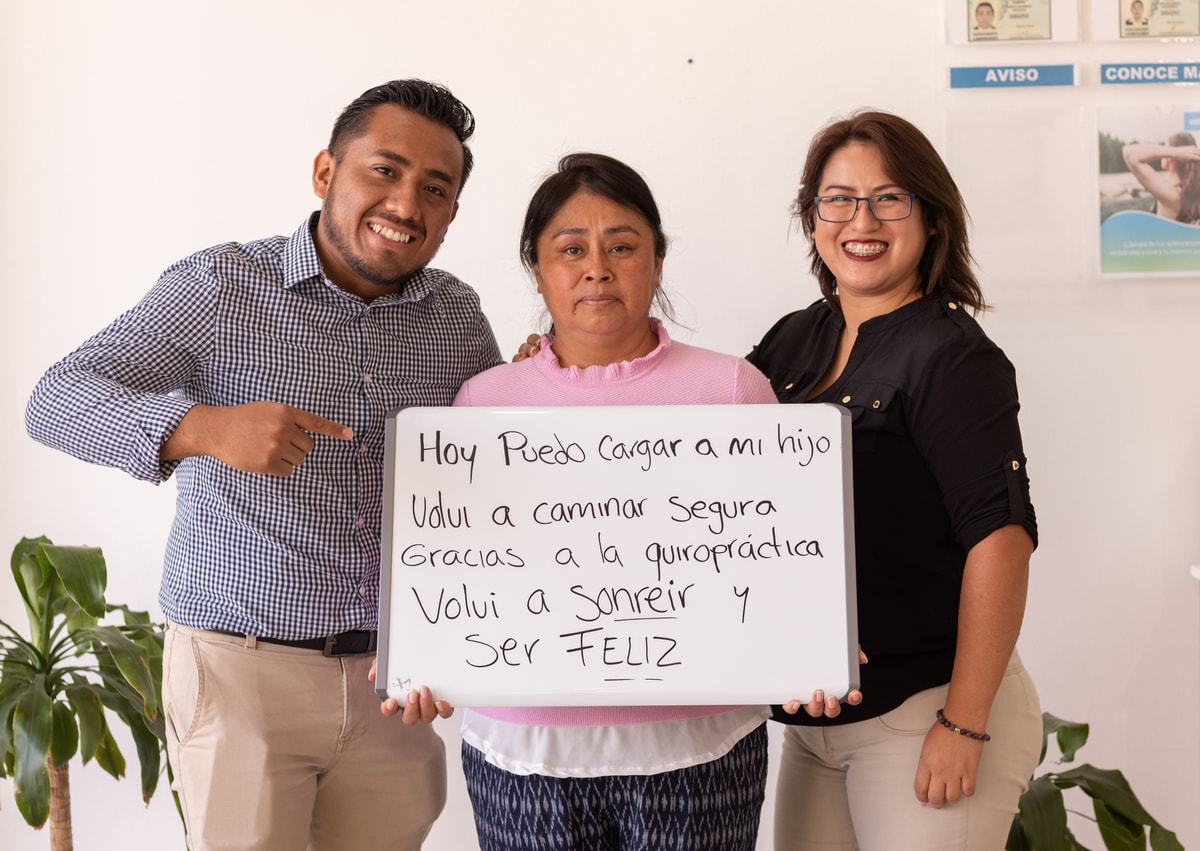 AVISO
CONOCE MA
Hoy Puedo Cargar a mi hijo
Volvi a caminar segura
Gracias a la quiropráctica
Volvi a Sonreir y
Ser FELIZ